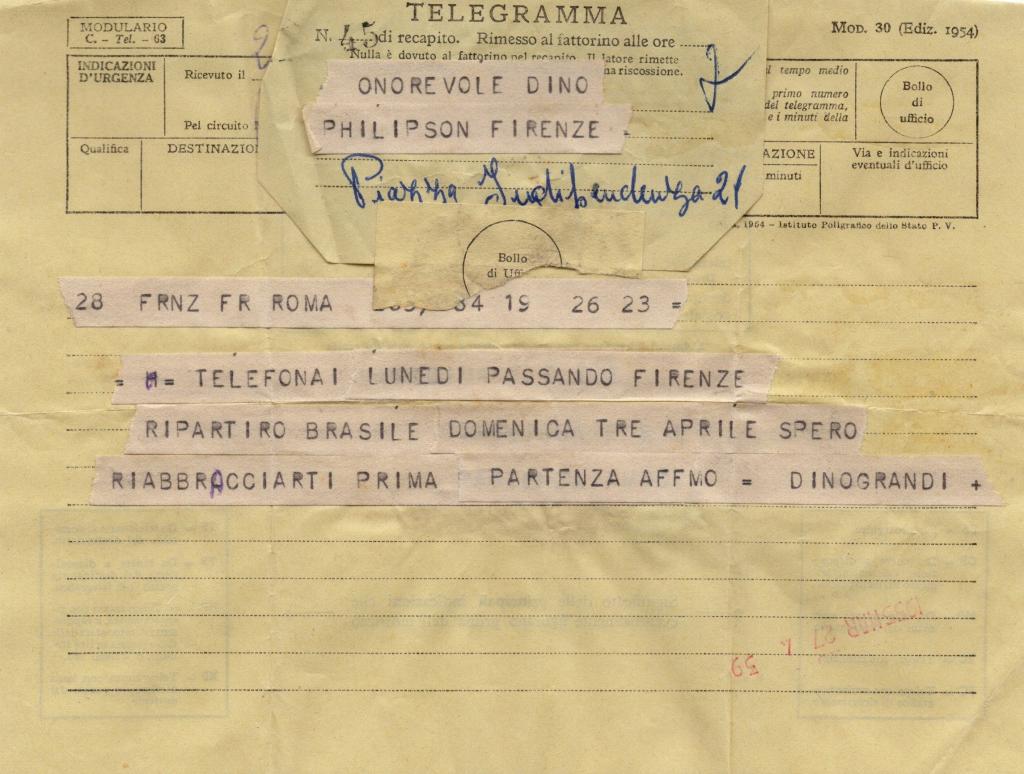 TELEGRAMMA
MODULARIO
C. - Tel. - 63
N. 45 di recapito. Rimesso al fattorino alle ore
Mod. 30 (Ediz. 1954)
Nulla è dovuto al fattorino pel recapito. Il latore rimette
na riscossione.
INDICAZIONI
D'URGENZA
Ricevuto il
Pel circuito
Qualifica
DESTINAZIO
l tempo medio
primo numero
del telegramma,
e i minuti della
Bollo
di
ufficio
AZIONE
minuti
Via e indicazioni
eventuali d'ufficio
ONOREVOLE DINO
PHILIPSON FIRENZE =
Piazza Indipendenza 21
1954 - Istituto Poligrafico dello Stato P. V.
Bollo
di Uff
28 FRNZ FR ROMA 34 19 26 23 =
= H = TELEFONAI LUNEDI PASSANDO FIRENZE
RIPARTIRO BRASILE DOMENICA TRE APRILE SPERO
RIABBRACCIARTI PRIMA PARTENZA AFFMO = DINOGRANDI +
1955 MAR 27 4 39